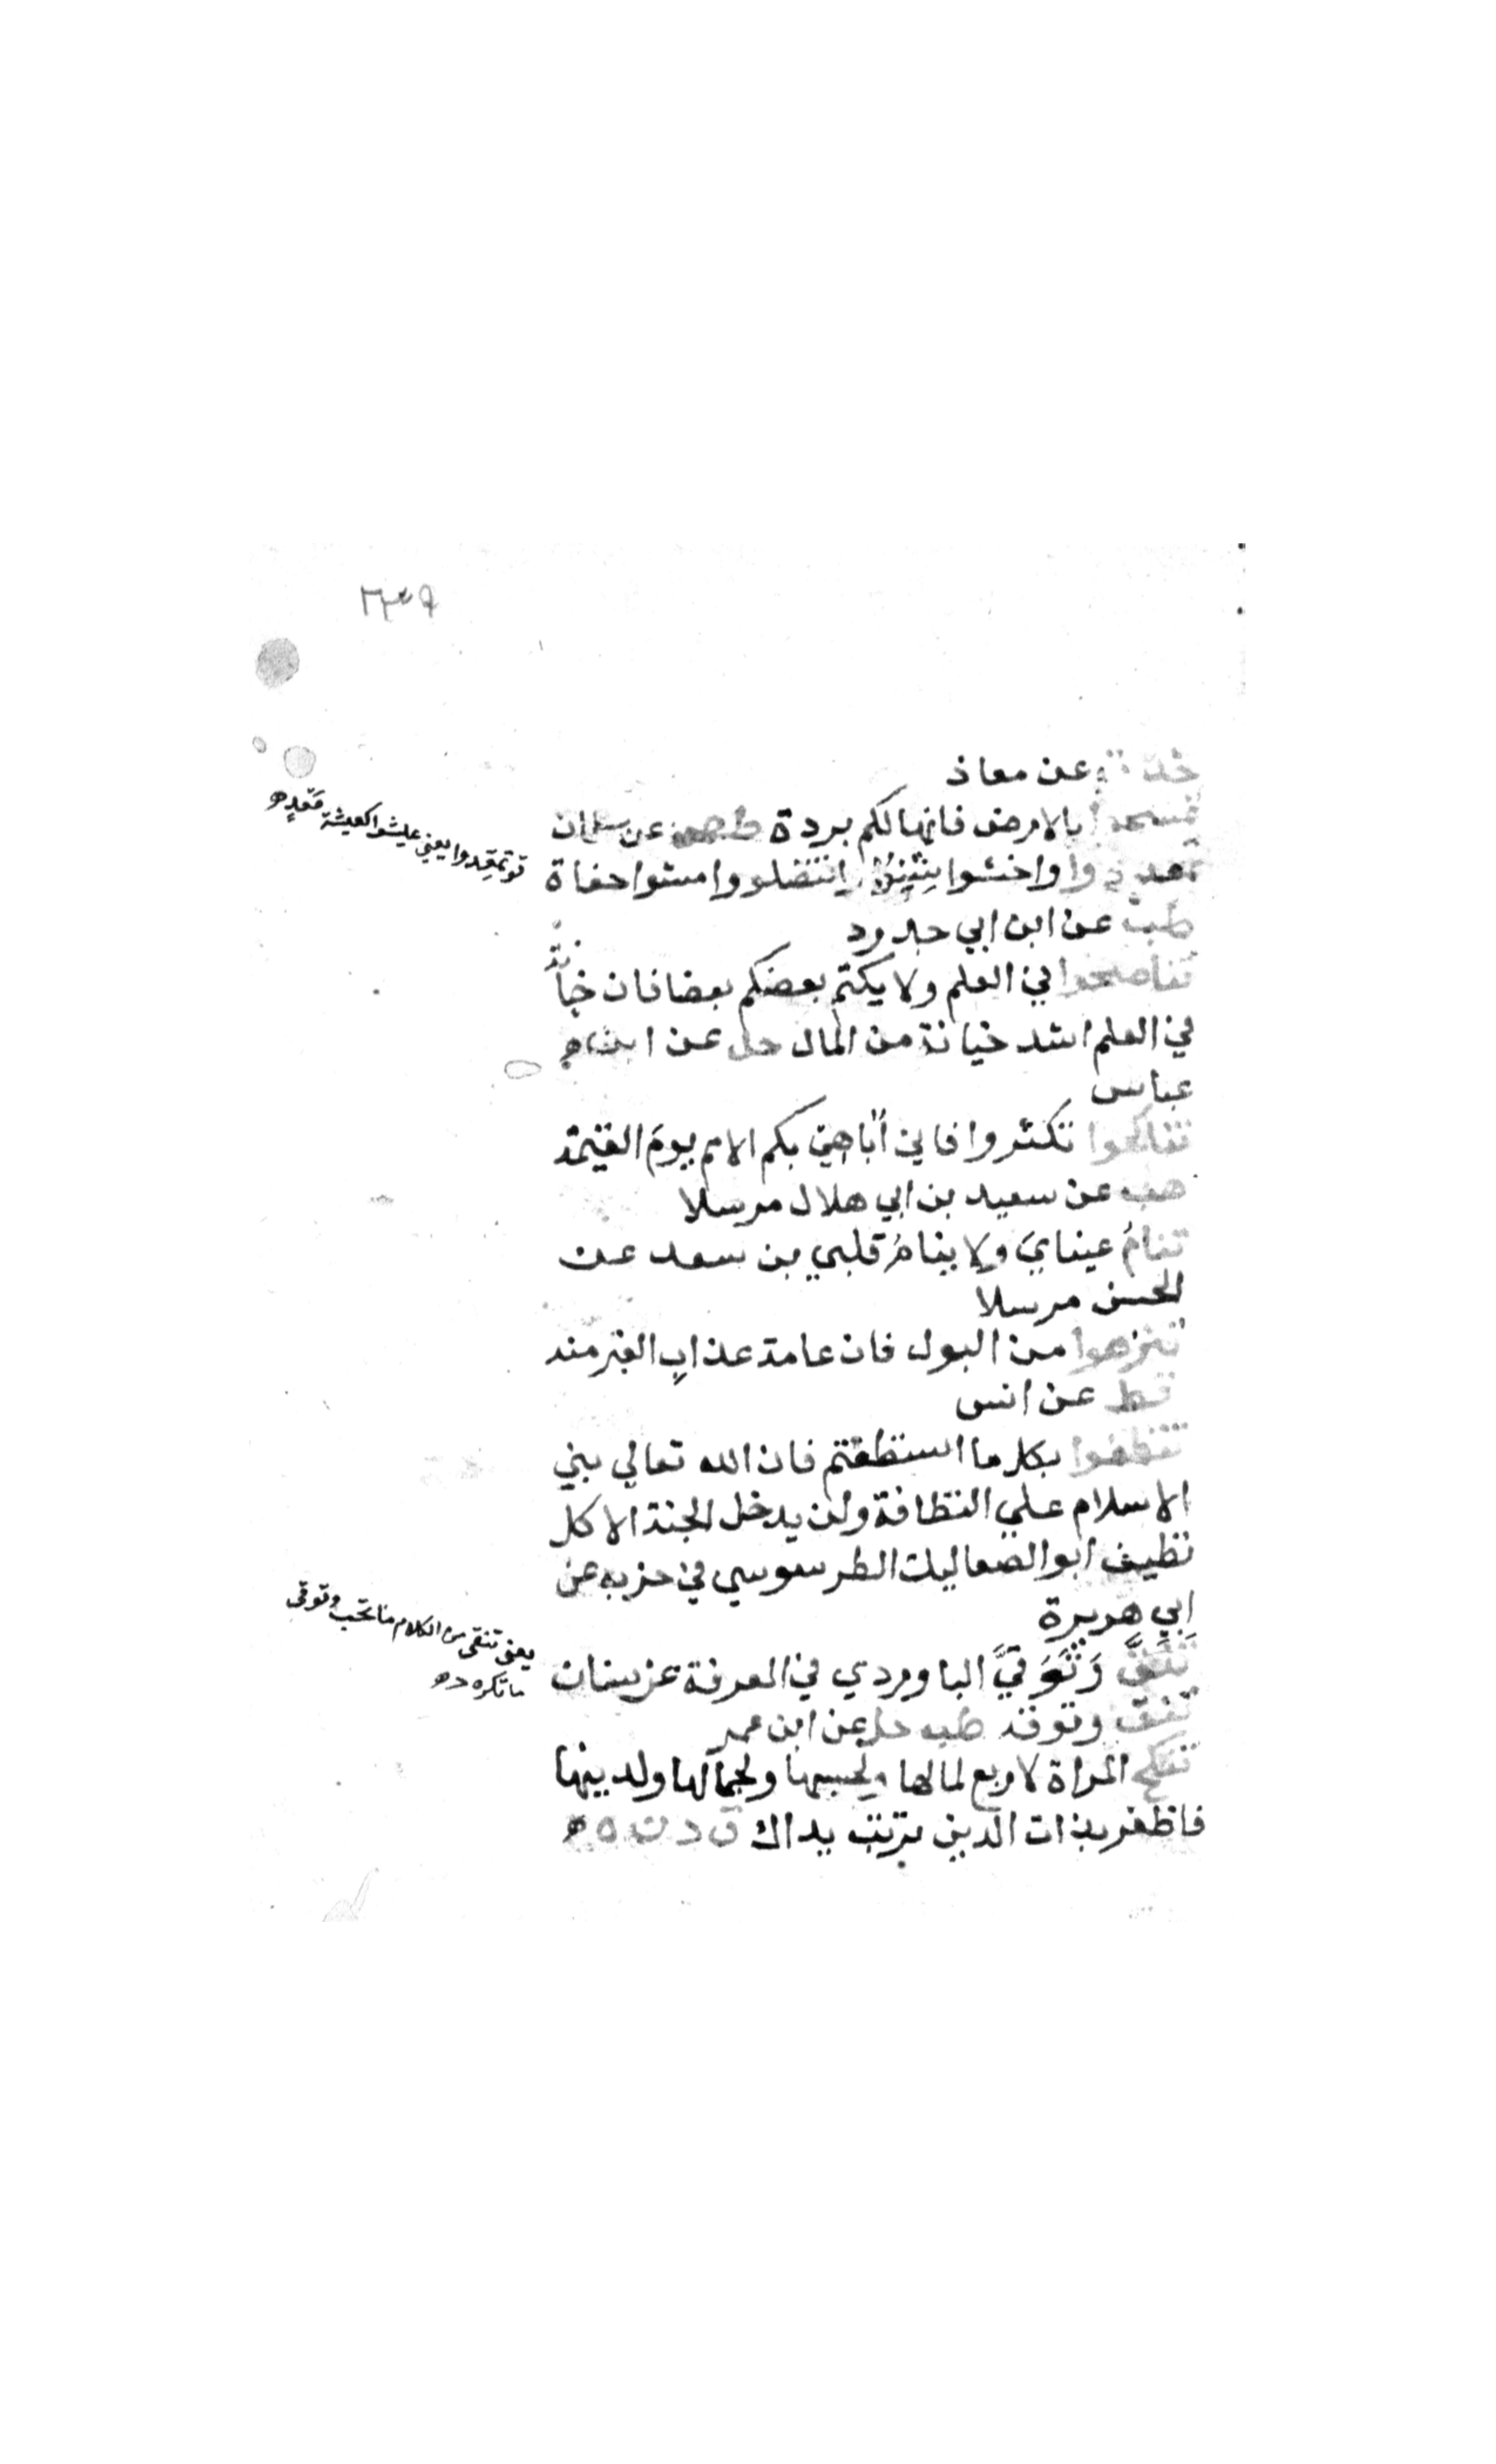 ٢٣٩
عن معاذ
تمسحوا بالارض فانها لكم بردة طص عن سلمان
تمعددوا واخشوشنوا وانتضلوا وامشوا حفاة
طب عن ابن ابي حدرد
تناصحوا في العلم ولا يكتم بعضكم بعضا فان خيانة
في العلم اشد خيانة من المال حل عن ابن
عباس
تناكحوا تكثروا فاني أباهي بكم الامم يوم القيمة
هب عن سعيد بن ابي هلال مرسلا
تنامُ عيناي ولا ينامُ قلبي بن سعد عن
الحسن مرسلا
تنزهوا من البول فان عامة عذاب القبر منه
قط عن انس
تنظفوا بكل ما استطعتم فان الله تعالي بني
الاسلام علي النظافة ولن يدخل الجنة الا كل
نظيف ابو الصعاليك الطرسوسي في جزيه عن
ابي هريرة
تَنَقَّ وَتَوَقَّ الباوردي في المعرفة عن سنان
تنق وتوقه طب حل عن ابن عمر
تنكح المراة لاربع لمالها ولحسبها ولجمالها ولدينها
فاظفر بذات الدين تربت يداك ق د ن ه
قوله تمعددوا يعني عيشوا كعيشة مَعَدٍّ ه
يعني تنقى من الكلام ما تحب وتوقى
ما تكره ه